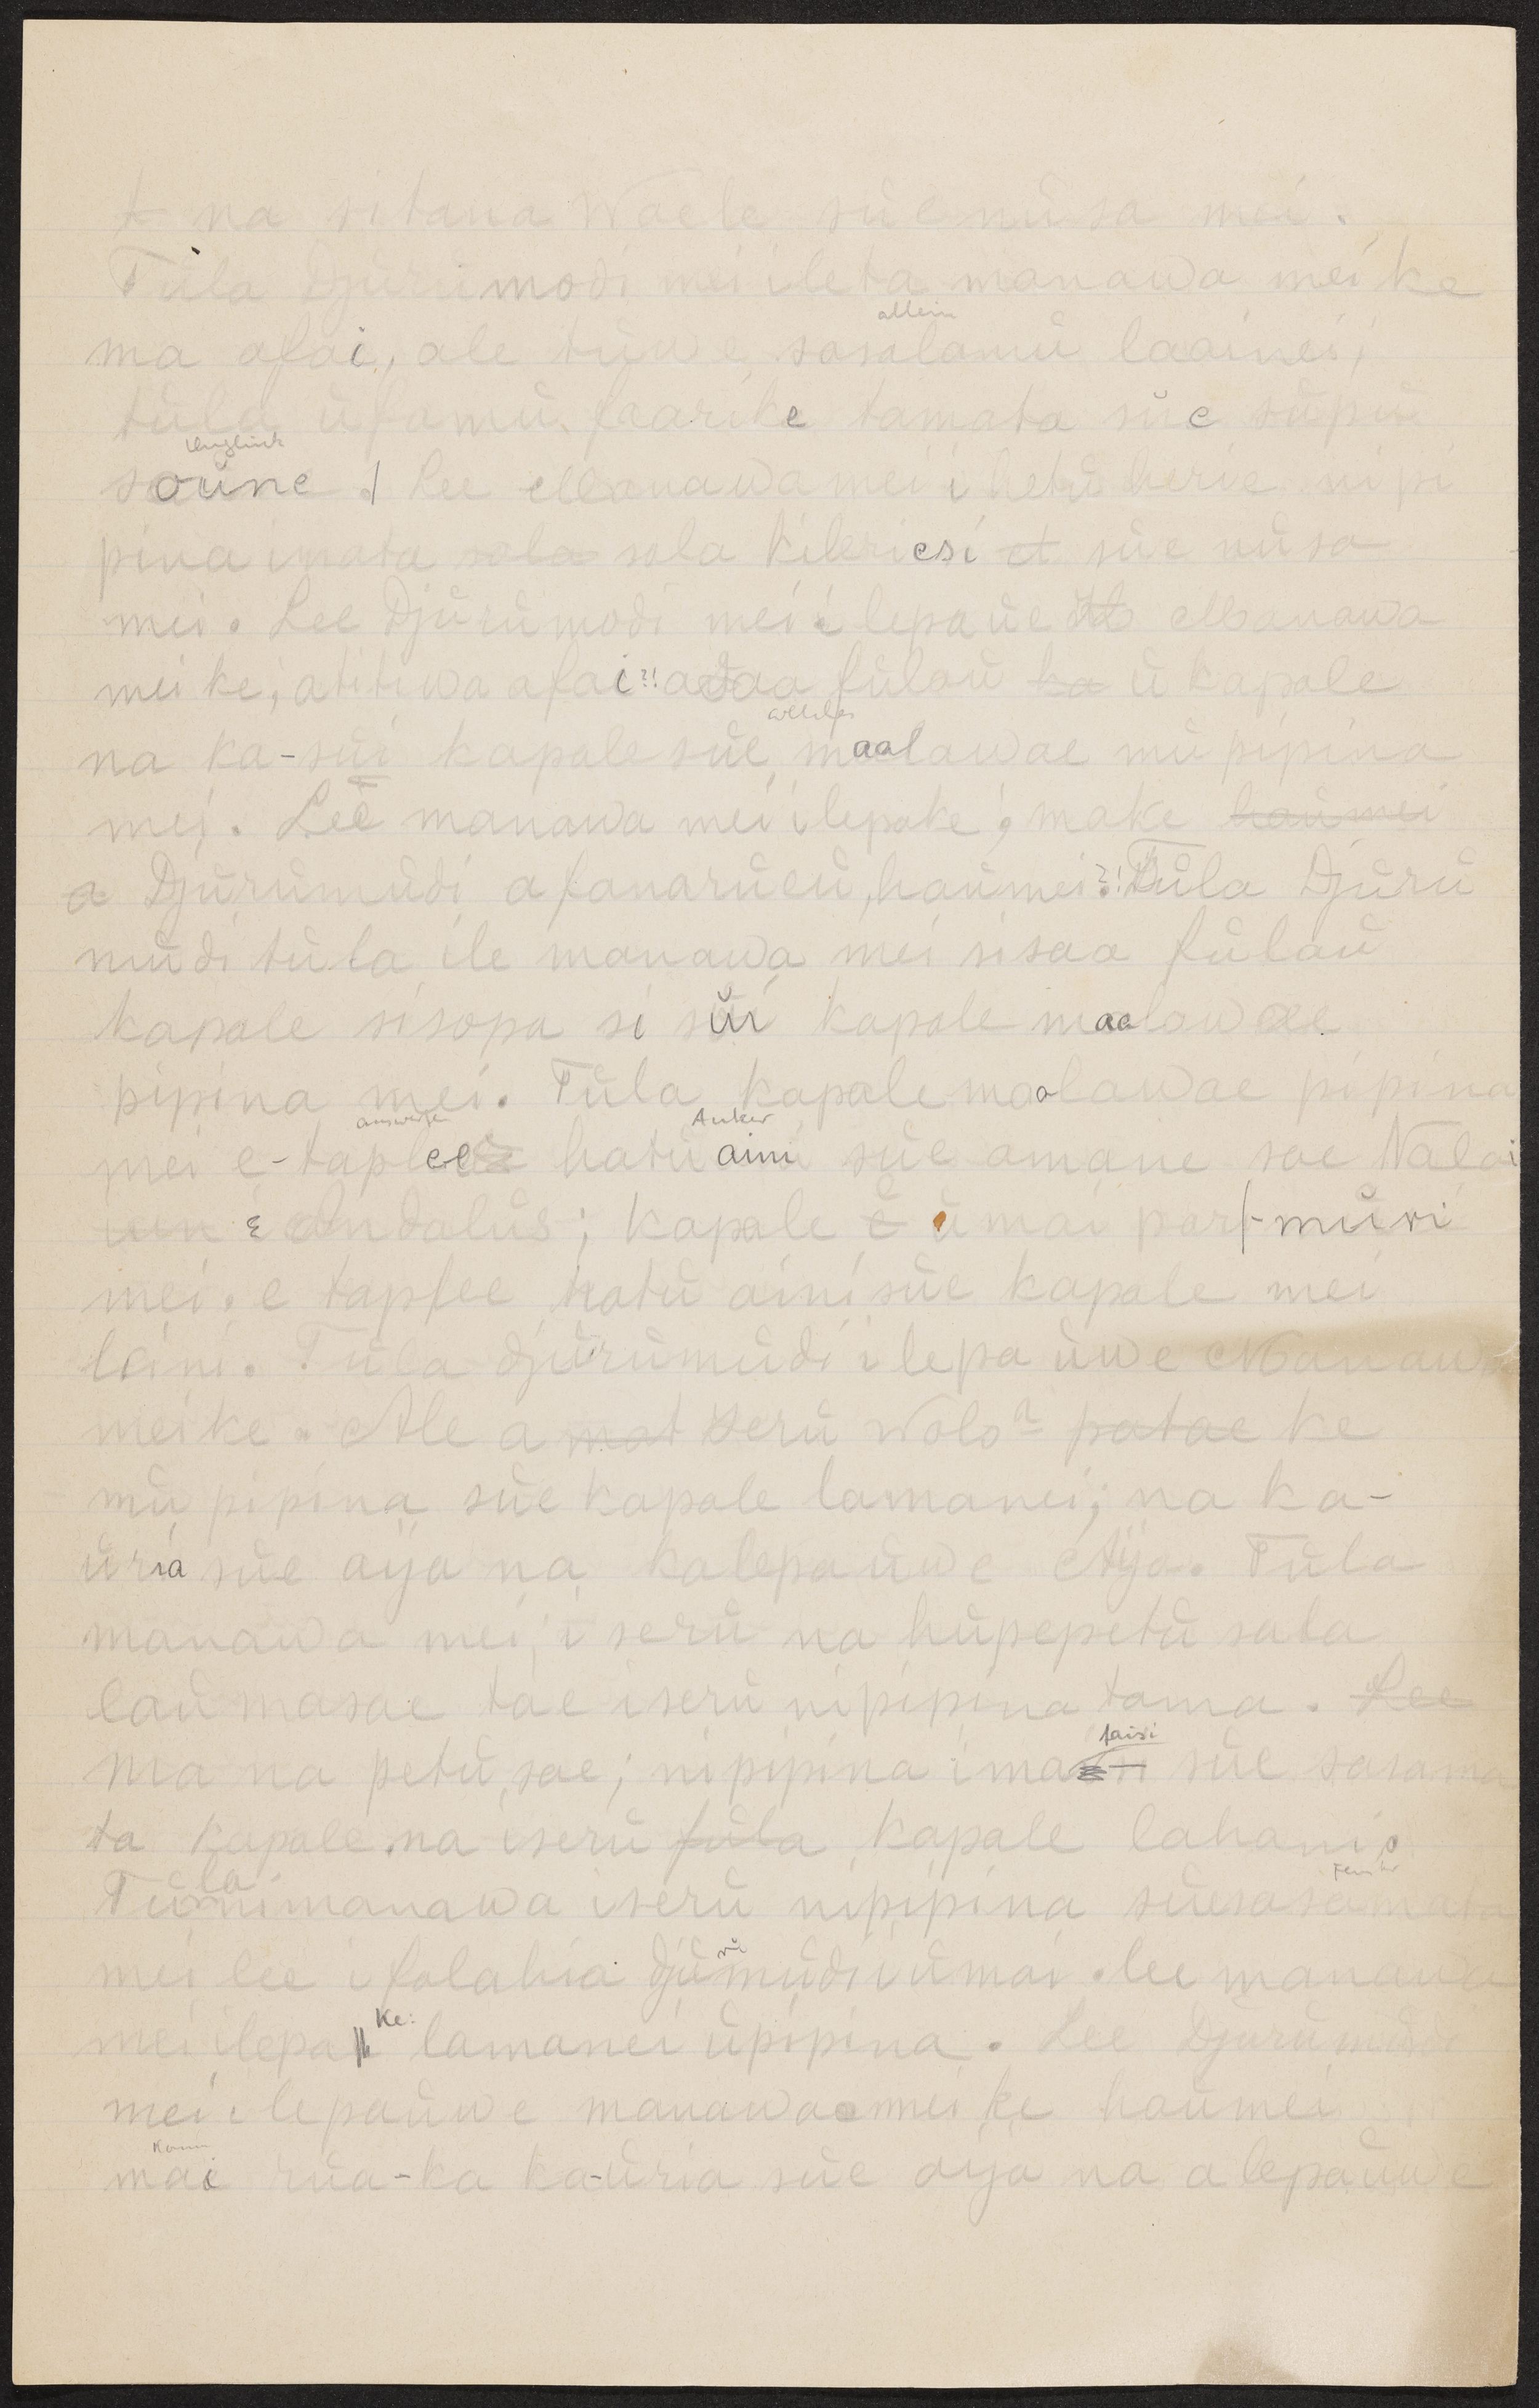 na sitana Waele süe nüsa mei.
Tüla Djürümodi mei ileta manawa mei ke
allein
ma afai, ale tüwe, sasalamü laainei,
tüla üfamü faarike tamata süe süpü
Unglück
soüne. Lee Manawa mei i hetü herie nipi
pina imata sala sola kileriesi süe nüsa
mei. Lee Djürümodi mei ilepaüe Manawa
mei ke; atitiwa afai?! adaa fülaü ka ü kapale
welches
na ka-süi kapale süe maalawae mü pipina
mei. Lee manawa mei ilepake; make haümei
a Djürümüdi afanarüeü, haümei?! Tüla Djürü
müdi tüla ile manawa mei sisaa fülaü
kapale sisopa si süi kapale maalawae
pipina mei. Tüla kapale maalawae pipina
auswerfen Anker
mei e-taplee hatü aini süe amane sae Nalai
e Andalüs; kapale e ümai part-müri
mei. e taplee hatü aini süe kapale mei
laini. Tüla djürümüdi ilepaüwe Manawa
mei ke. Ale a mat serü Wolo? patae ke
mü pipina süe kapale lamanei; na ka-
üria süe aÿa na kalepaüwe Aÿa. Tüla
manawa mei, i serü na hüpepetü sata
laü masae tae iserü nipipina tama. Lee
faisi
ma na petü, sae; nipipina ima süe sasama
ta kapale na iserü füla kapale lahani.
la Fenster
Tünimanawa iserü nipipina süesasamata
rü
mei lee i falahia djümüdi i ümai. lee manawa
ke:
mei ilepa lamanei üpipina. Lee Djürümüdi
mei ilepaüwe manawa mei ke haümei
Kann
mai rüa-ka ka-üria süe aÿa na alepaüwe